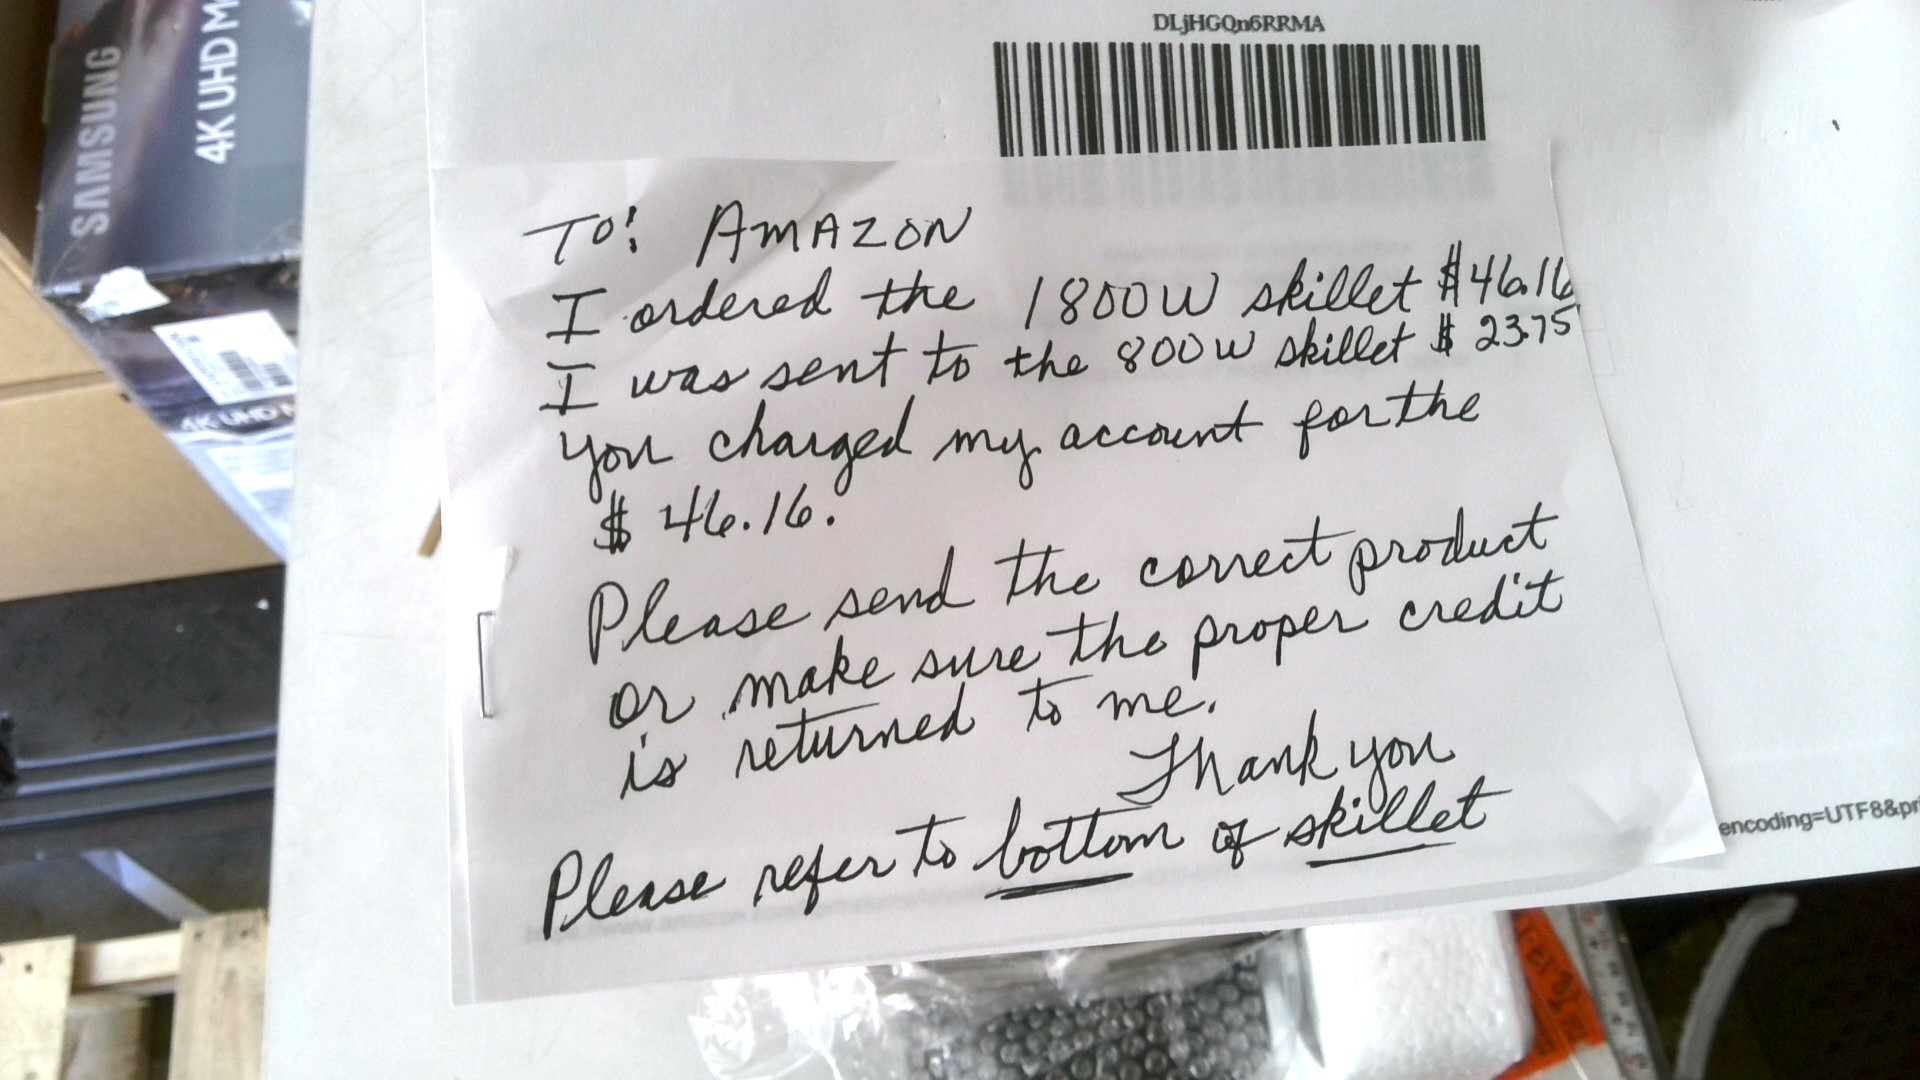 DLjHGQn6RRMA
SAMSUNG
4K UHD M
4K UHD
To: AMAZON
I ordered the 1800W skillet $46.16
I was sent to the 800W skillet $23.75
you charged my account for the
$46.16.
Please send the correct product
or make sure the proper credit
is returned to me.
Thank you
Please refer to bottom of skillet
encoding=UTF8&pr